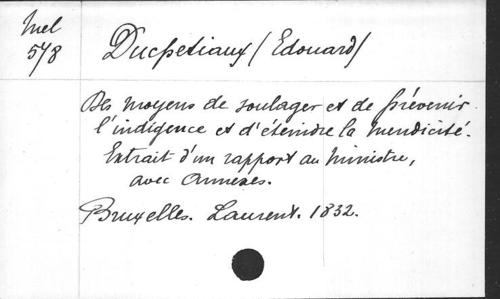 Mel
578
Ducpetiaux (Edouard)
Des moyens de soulager et de prévenir
l'indigence et d'éteindre la mendicité.
Extrait d'un rapport au Ministre,
avec Annexes.
Bruxelles. Laurent. 1832.